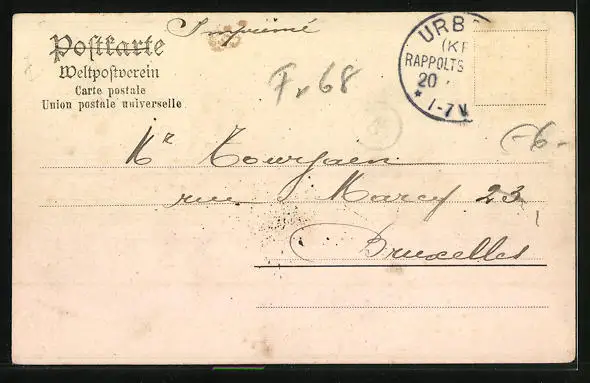 Imprimé
Postkarte
Weltpostverein
Carte postale
Union postale universelle
URB
(KR
RAPPOLTS
20
* 1-7 V
Fr 68
-6-
Mr Tourjäen
rue Marcq 23
Bruxelles